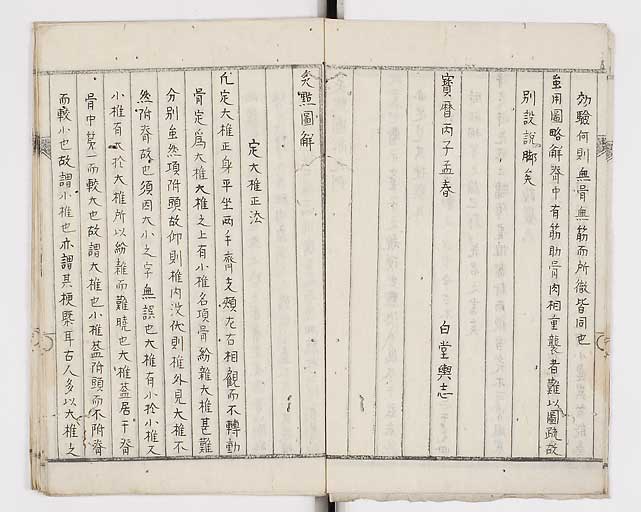 効驗何則無骨無筋而所徹皆同也
並用圖略解脊中有筋肋骨肉相重襲者難以圖疏故
別設說脚矣
寶曆丙子孟春
白堂輿志
灸點圖解
定大椎正法
凡定大椎正身平坐兩手齊支頰左右相觀而不轉動
骨定爲大椎大椎之上有小椎名項骨紛雜大椎甚難
分別矣然項附頭故仰則椎內沒伏則椎外見大椎不
然附脊故也須因大小之字無誤也大椎有小於小椎又
小椎有大於大椎所以紛雜而難曉也大椎蓋居于脊
骨中第一而較大也故謂大椎也小椎蓋附頭而不附脊
而較小也故謂小椎也亦謂其梗槩耳古人多以大椎之